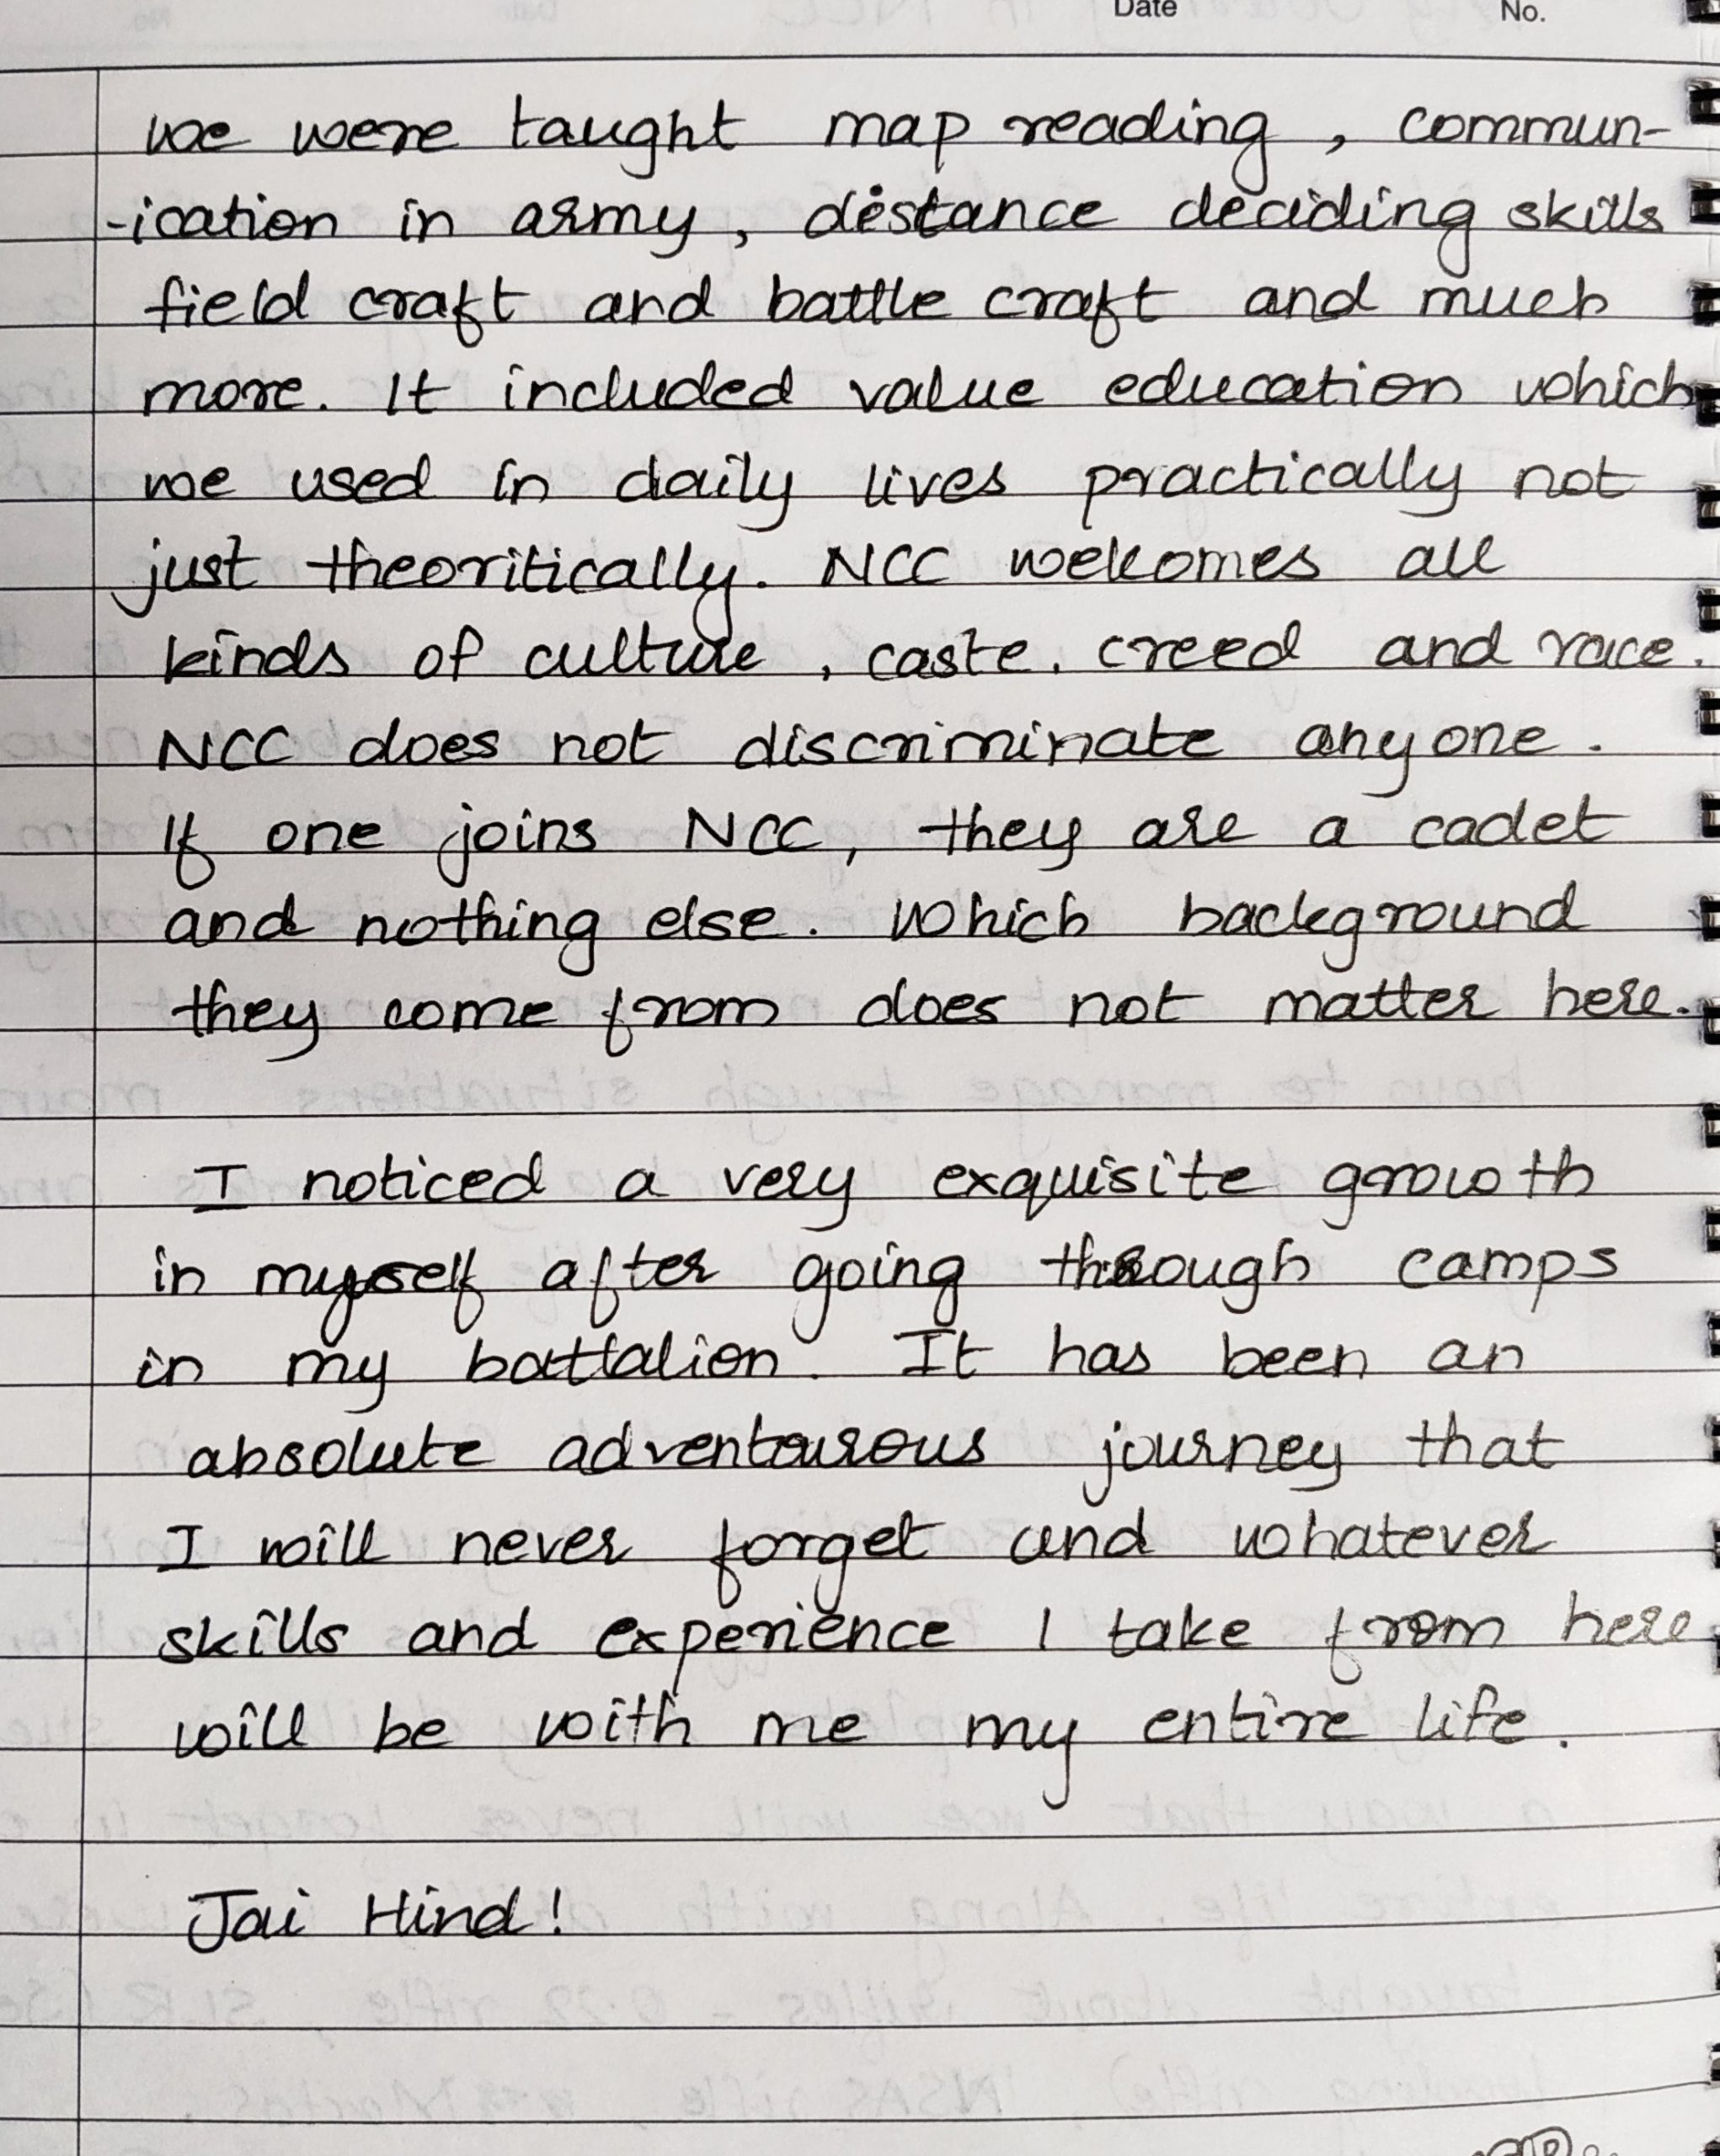 Date No.
we were taught map reading , commun-
-ication in army , distance deciding skills
field craft and battle craft and much
more. It included value education which
we used in daily lives practically not
just theoritically. NCC welcomes all
kinds of culture , caste. creed and race.
NCC does not discriminate anyone .
If one joins NCC, they are a cadet
and nothing else. Which background
they come from does not matter here.
I noticed a very exquisite growth
in myself after going through camps
in my battalion. It has been an
absolute adventourous journey that
I will never forget and whatever
skills and experience I take from here
will be with me my entire life.
Jai Hind!